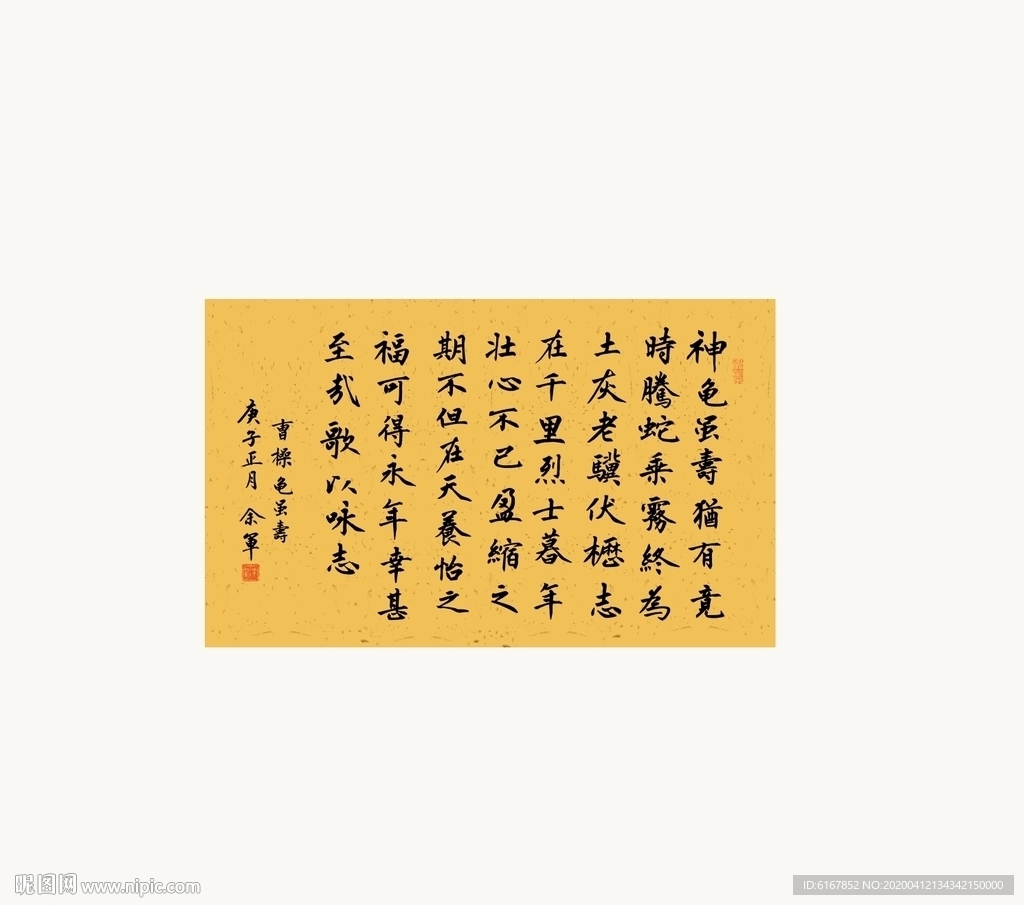 神龟虽壽猶有竟
時騰蛇乘霧終為
土灰老驥伏櫪志
在千里烈士暮年
壮心不已盈縮之
期不但在天養怡之
福可得永年幸甚
至哉歌以咏志
曹操龟虽壽
庚子正月 余軍
昵图网 www.nipic.com
ID:6167852 NO:20200412134342150000